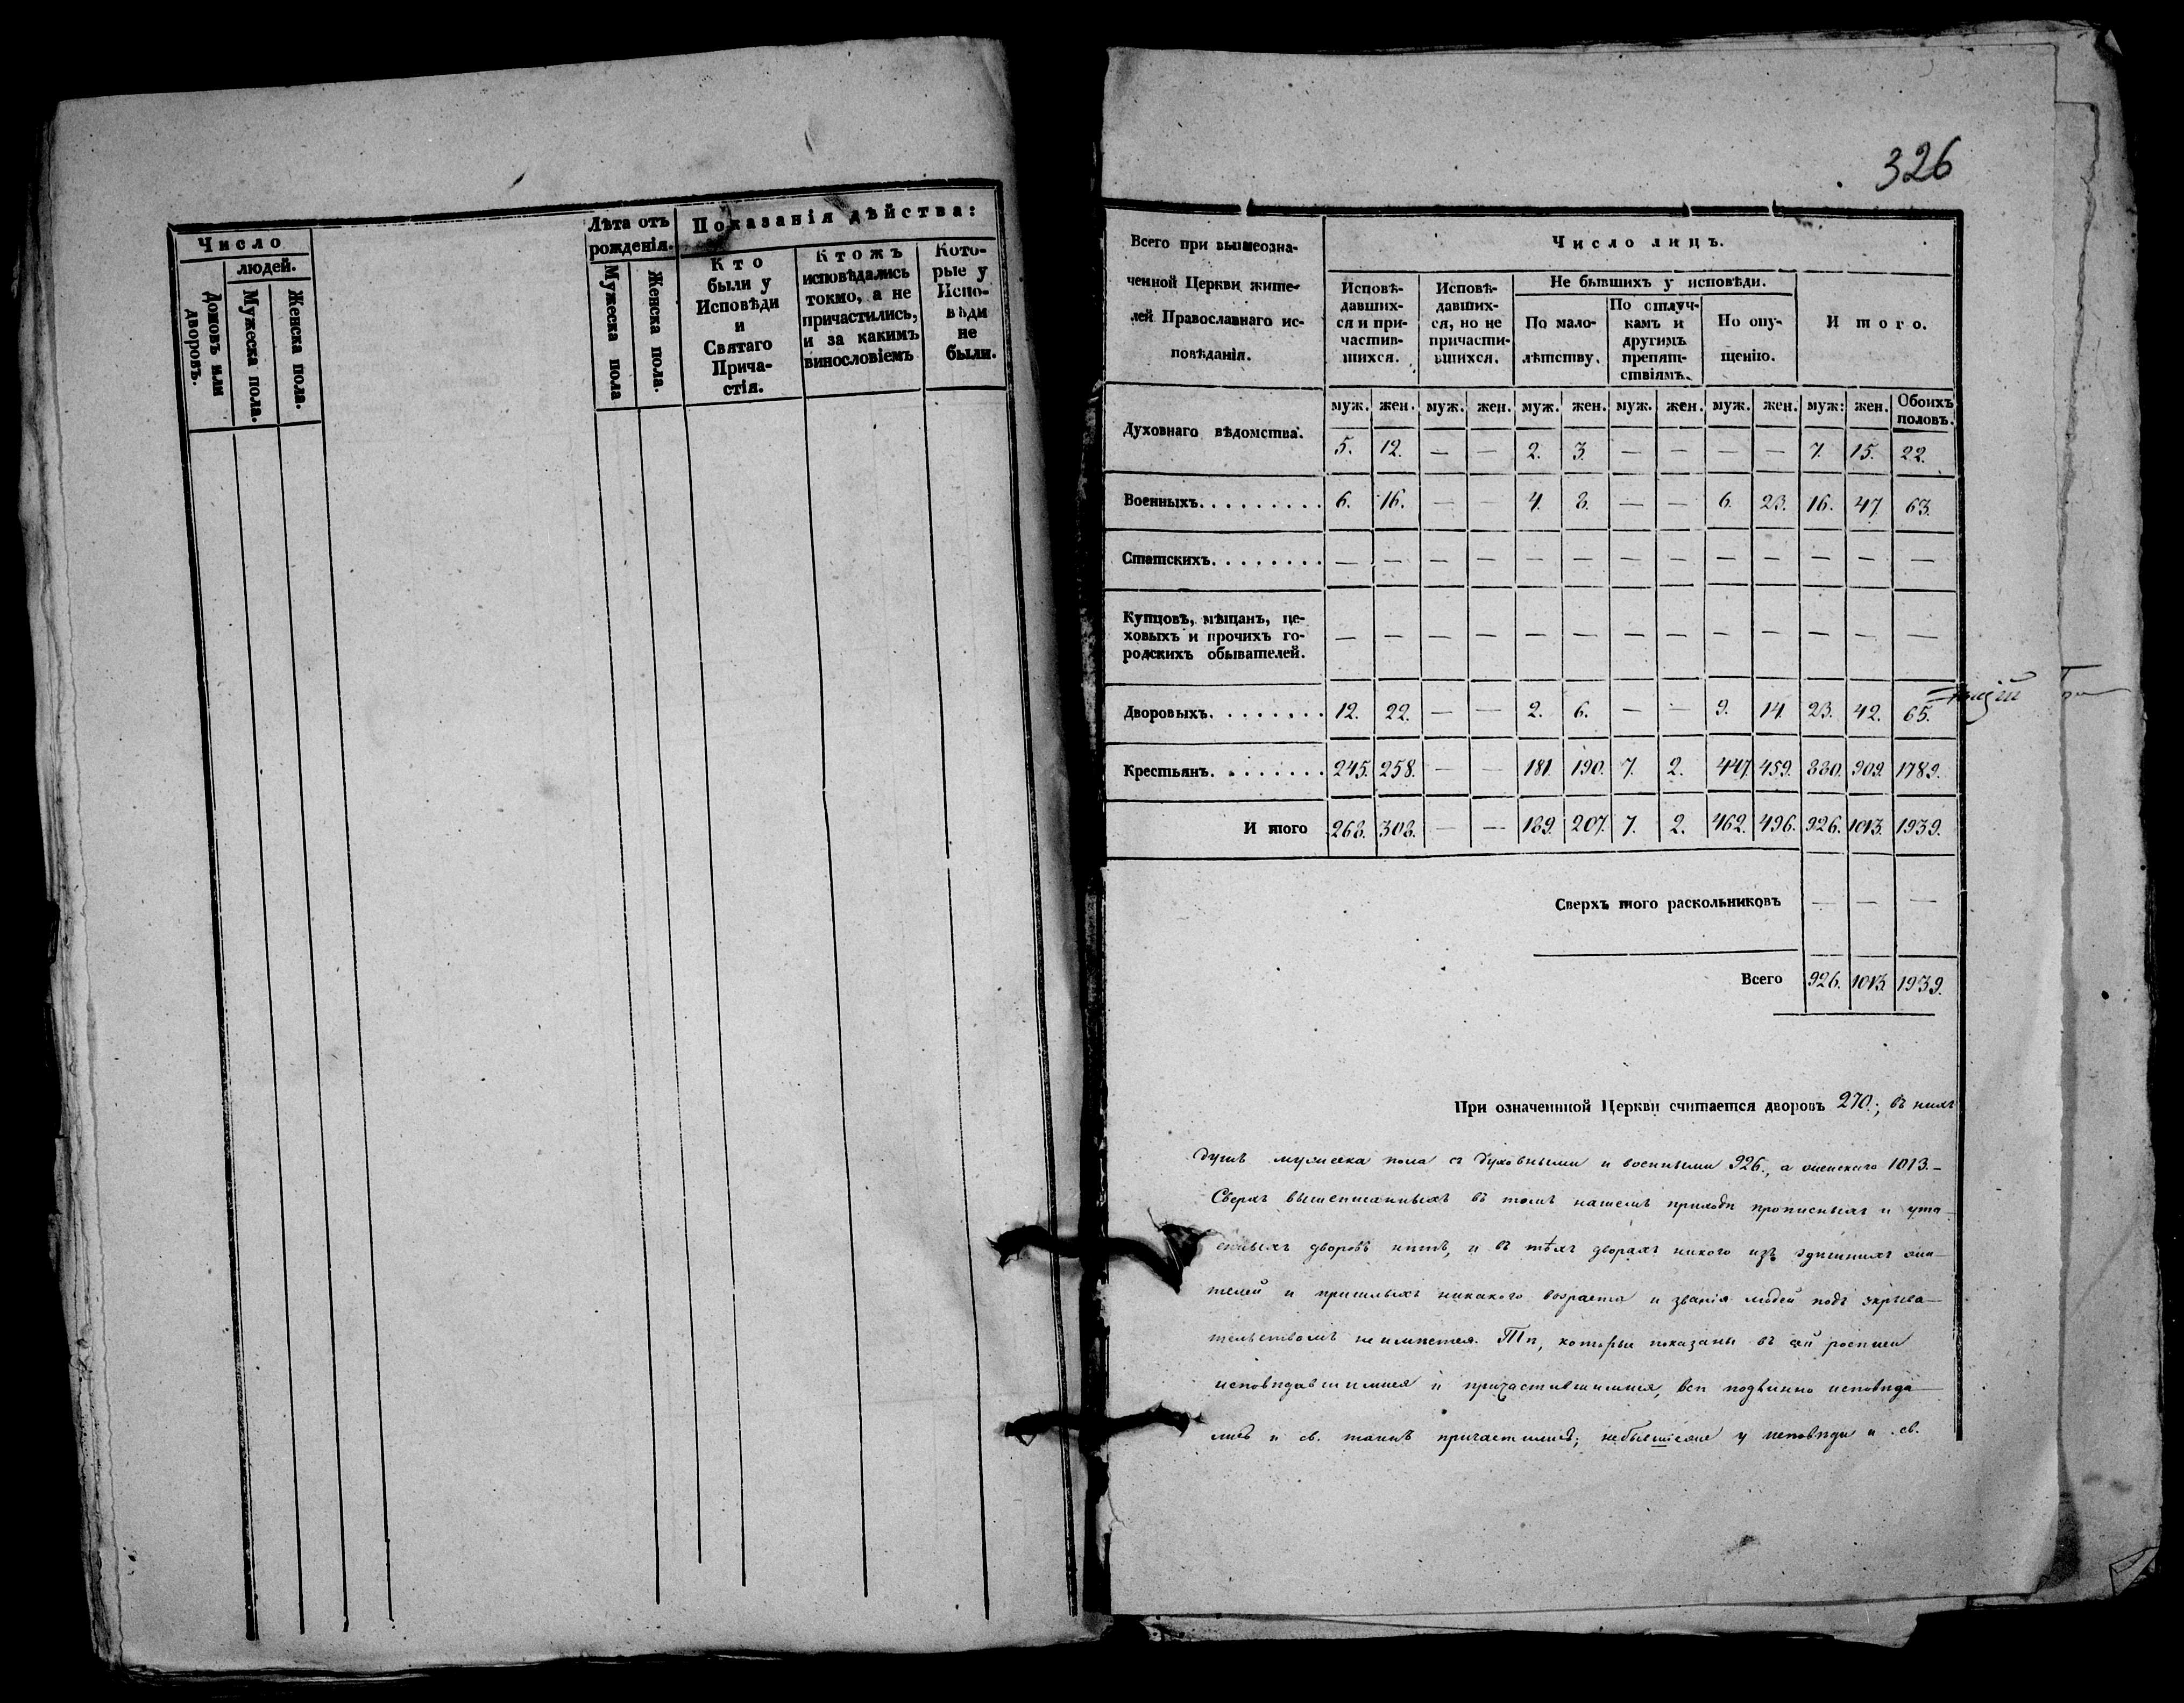 Число
людей.
Домовъ или дворовъ.
Мужеска пола.
Женска пола.
Лѣта отъ
рожденія.
Мужеска пола
Женска пола.
Показанія дѣйства:
Кто
были у
Исповѣди
и
Святаго
Прича-
стія.
Ктожъ
исповѣдались
токмо, а не
причастились,
и за какимъ
винословіемъ
Кото-
рые у
Испо-
вѣди
не
были.
326
Всего при вышеозна-
ченной Церкви жите-
лей Православнаго ис-
повѣданія.
Число лицъ.
Исповѣ-
давших-
ся и при-
частив-
шихся.
Исповѣ-
давших-
ся, но не
причасти-
вшихся.
Не бывшихъ у исповѣди.
По мало-
лѣтству.
По отлуч-
камъ и
другимъ
препят-
ствіямъ.
По опу-
щенію.
Итого.
муж. жен. муж. жен. муж. жен. муж. жен. муж. жен. муж: жен. Обоихъ половъ.
Духовнаго вѣдомства. 5. 12. — — 2. 3. — — — — 7. 15. 22.
Военныхъ......... 6. 16. — — 4. 8. — — 6. 23. 16. 47. 63.
Статскихъ........ — — — — — — — — — — — — —
Купцовъ, мѣщанъ, це-
ховыхъ и прочихъ го-
родскихъ обывателей. — — — — — — — — — — — — —
Дворовыхъ........ 12. 22. — — 2. 6. — — 9. 14. 23. 42. 65.
Крестьянъ........ 245. 258. — — 181. 190. 7. 2. 447. 459. 880. 909. 1789.
Итого 268. 308. — — 189. 207. 7. 2. 462. 496. 926. 1013. 1939.
Сверхъ того раскольниковъ — — —
Всего 926. 1013. 1939.
При означенной Церкви считается дворовъ 270.; въ нихъ
душъ мужеска пола съ духовными и военными 926., а женскаго 1013.—
Сверхъ вышеписанныхъ въ томъ нашемъ приходѣ прописныхъ и ута-
енныхъ дворовъ нѣтъ, и въ тѣхъ дворахъ никого изъ здѣшнихъ жи-
телей и пришлыхъ никакого возраста и званія людей подъ укрыва-
тельствомъ не имѣется. Тѣ, которые показаны въ сей росписи
исповѣдавшимися и причастившимися, всѣ подлинно исповѣда-
лись и св. таинъ причастились; небывшіеже у исповѣди и св.